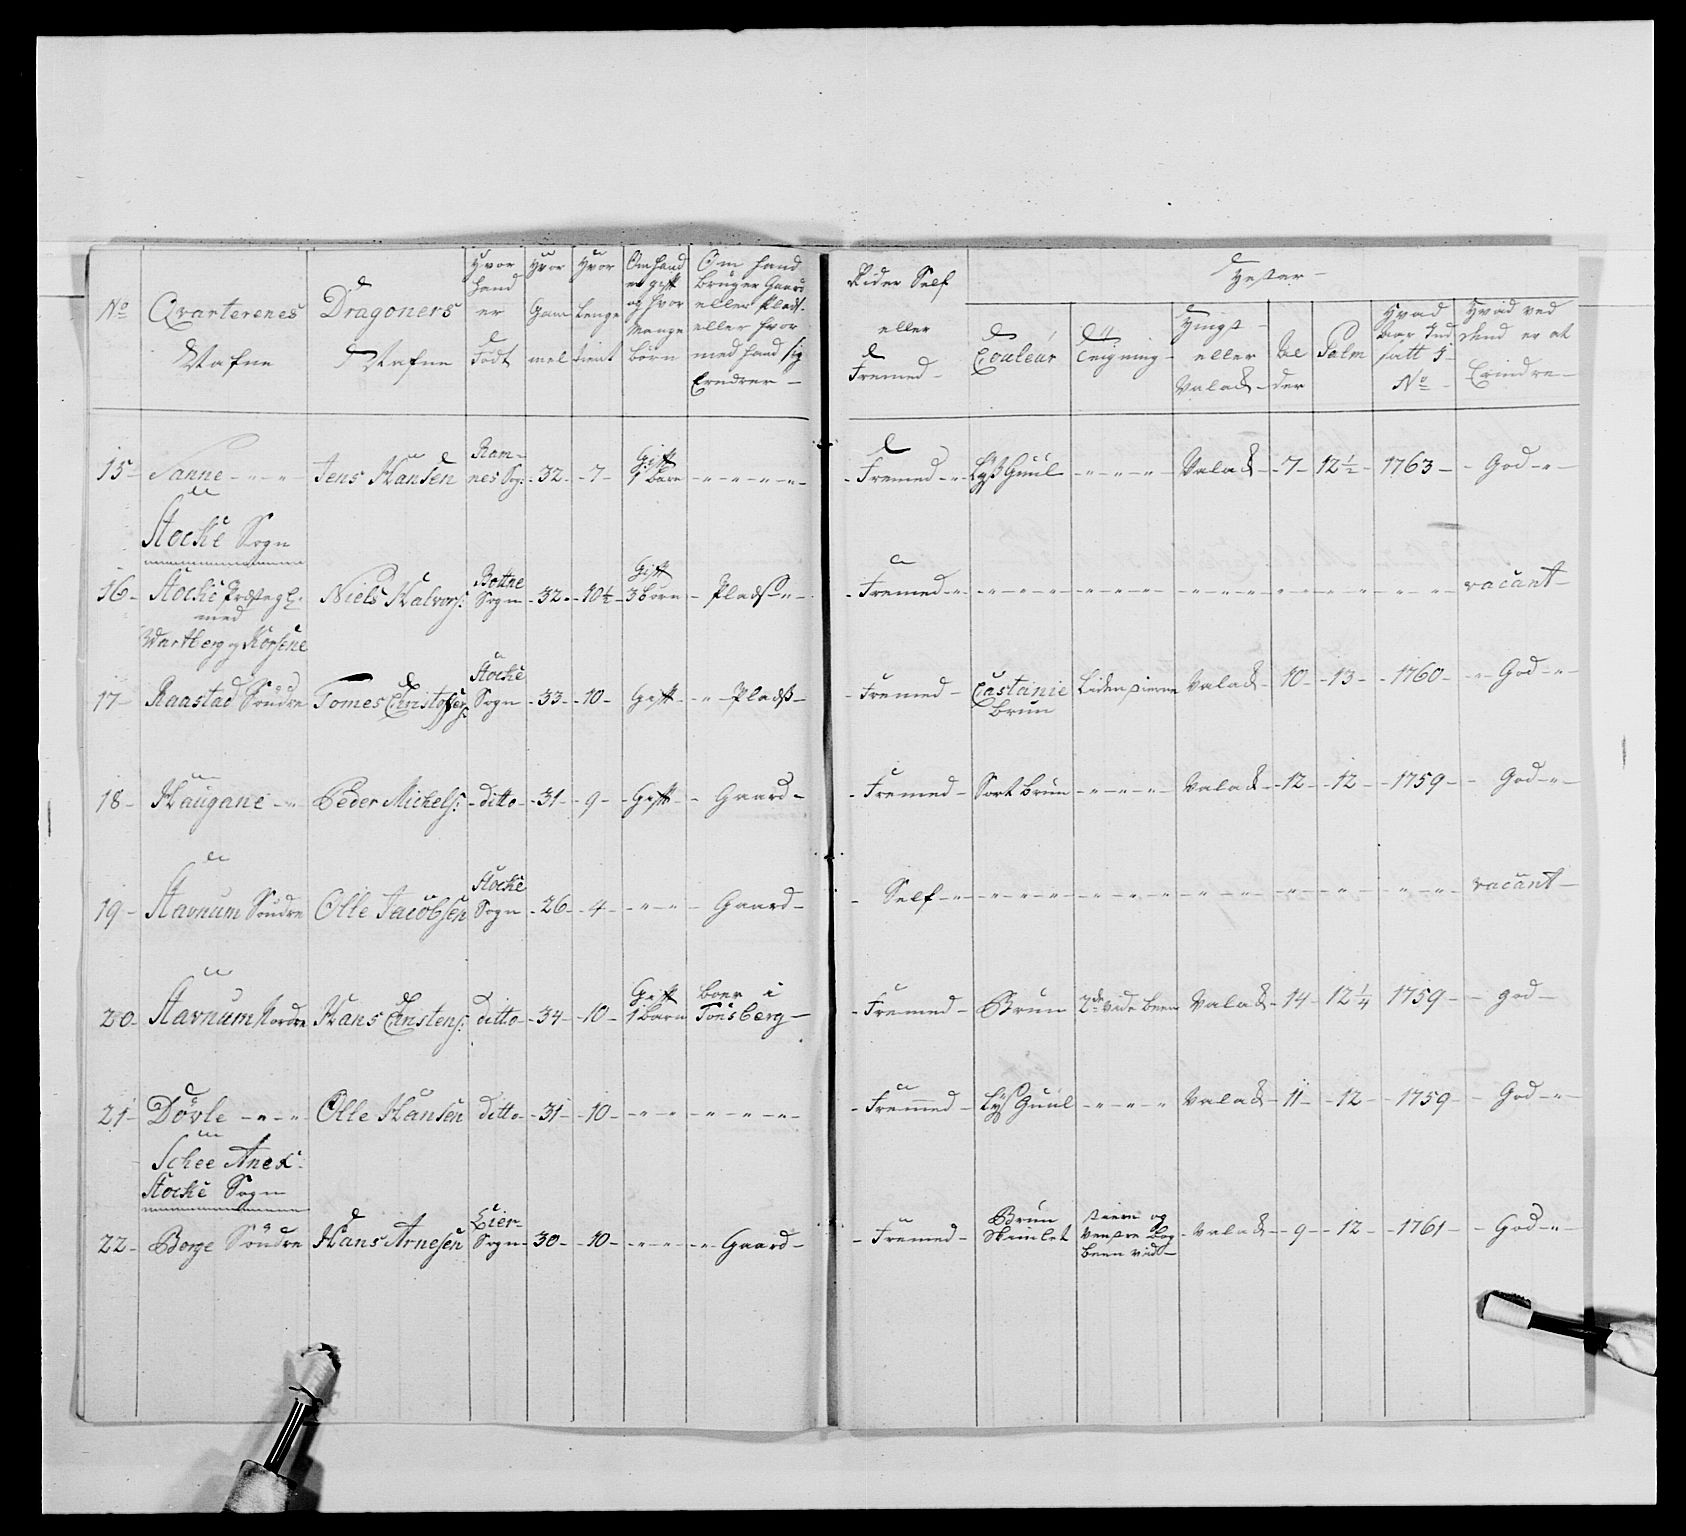 No Qvarterenes Nafne | Dragoners Nafne | Hvor hand er Født | Hvor Gammel | Hvor Lenge tient | Om hand er gift og hvor Mange børn | Om hand bruger Gaard eller Plads eller hvor med hand sig Erndrer | Rider Self eller Fremed | Hester
Couleur | Teigning | Hingst eller Valack | Alder | Palm | Hvad Aar Ind satt No | Hvad ved dend er at Erindre
15 - Sanne - - - | Jens Hansen | Ramnes Sog: | 32 | 7 | Gift 1 barn | - - - - - | Fremed | Lÿs Guul | - - - - | Valack | 7 | 12½ | 1763 | God
Stocke Sogn
16 - Stocke Præstegl: med Wartberg og Korsene | Niels Halvors: | Bottne Sogn | 32 | 10½ | Gift 3 børn | Plads | Fremed | - - - - | - - - - | - - - - | - - | - - | - - - | vacant
17 - Raastad Søndre | Tomes Christoffers: | Stocke Sogn | 33 | 10 | Gift | Plads | Fremed | Castanie brun | Liden stierne | Valack | 10 | 13 | 1760 | God
18 - Haugane | Peder Michels: | ditto | 31 | 9 | Gift | Gaard | Fremed | Sort brun | - - - - | Valack | 12 | 12 | 1759 | God
19 - Starnum Søndre | Olle Jacobsen | Stocke Sogn | 26 | 4 | - - - | Gaard | Self | - - - - | - - - - | - - - | - - | - - | - - - | vacant
20 - Starnum Nordre | Hans Christens: | ditto | 34 | 10 | Gift 1 barn | boer i Tønsberg | Fremed | Brun | 2de vide been | Valack | 14 | 12¼ | 1759 | god
21 - Døvle - - - | Olle Hansen | ditto | 31 | 10 | - - - | - - - - | Fremmed | Lÿs Guul | - - - - | Valack | 11 | 12 | 1759 | God
Schee Anex:
Stocke Sogn
22 - Borge Søndre | Hans Arnesen | Lier Sogn | 30 | 10 | - - - | Gaard | Fremed | Brun Skimlet | stiern og venstre bag been vid | valack | 9 | 12 | 1761 | God